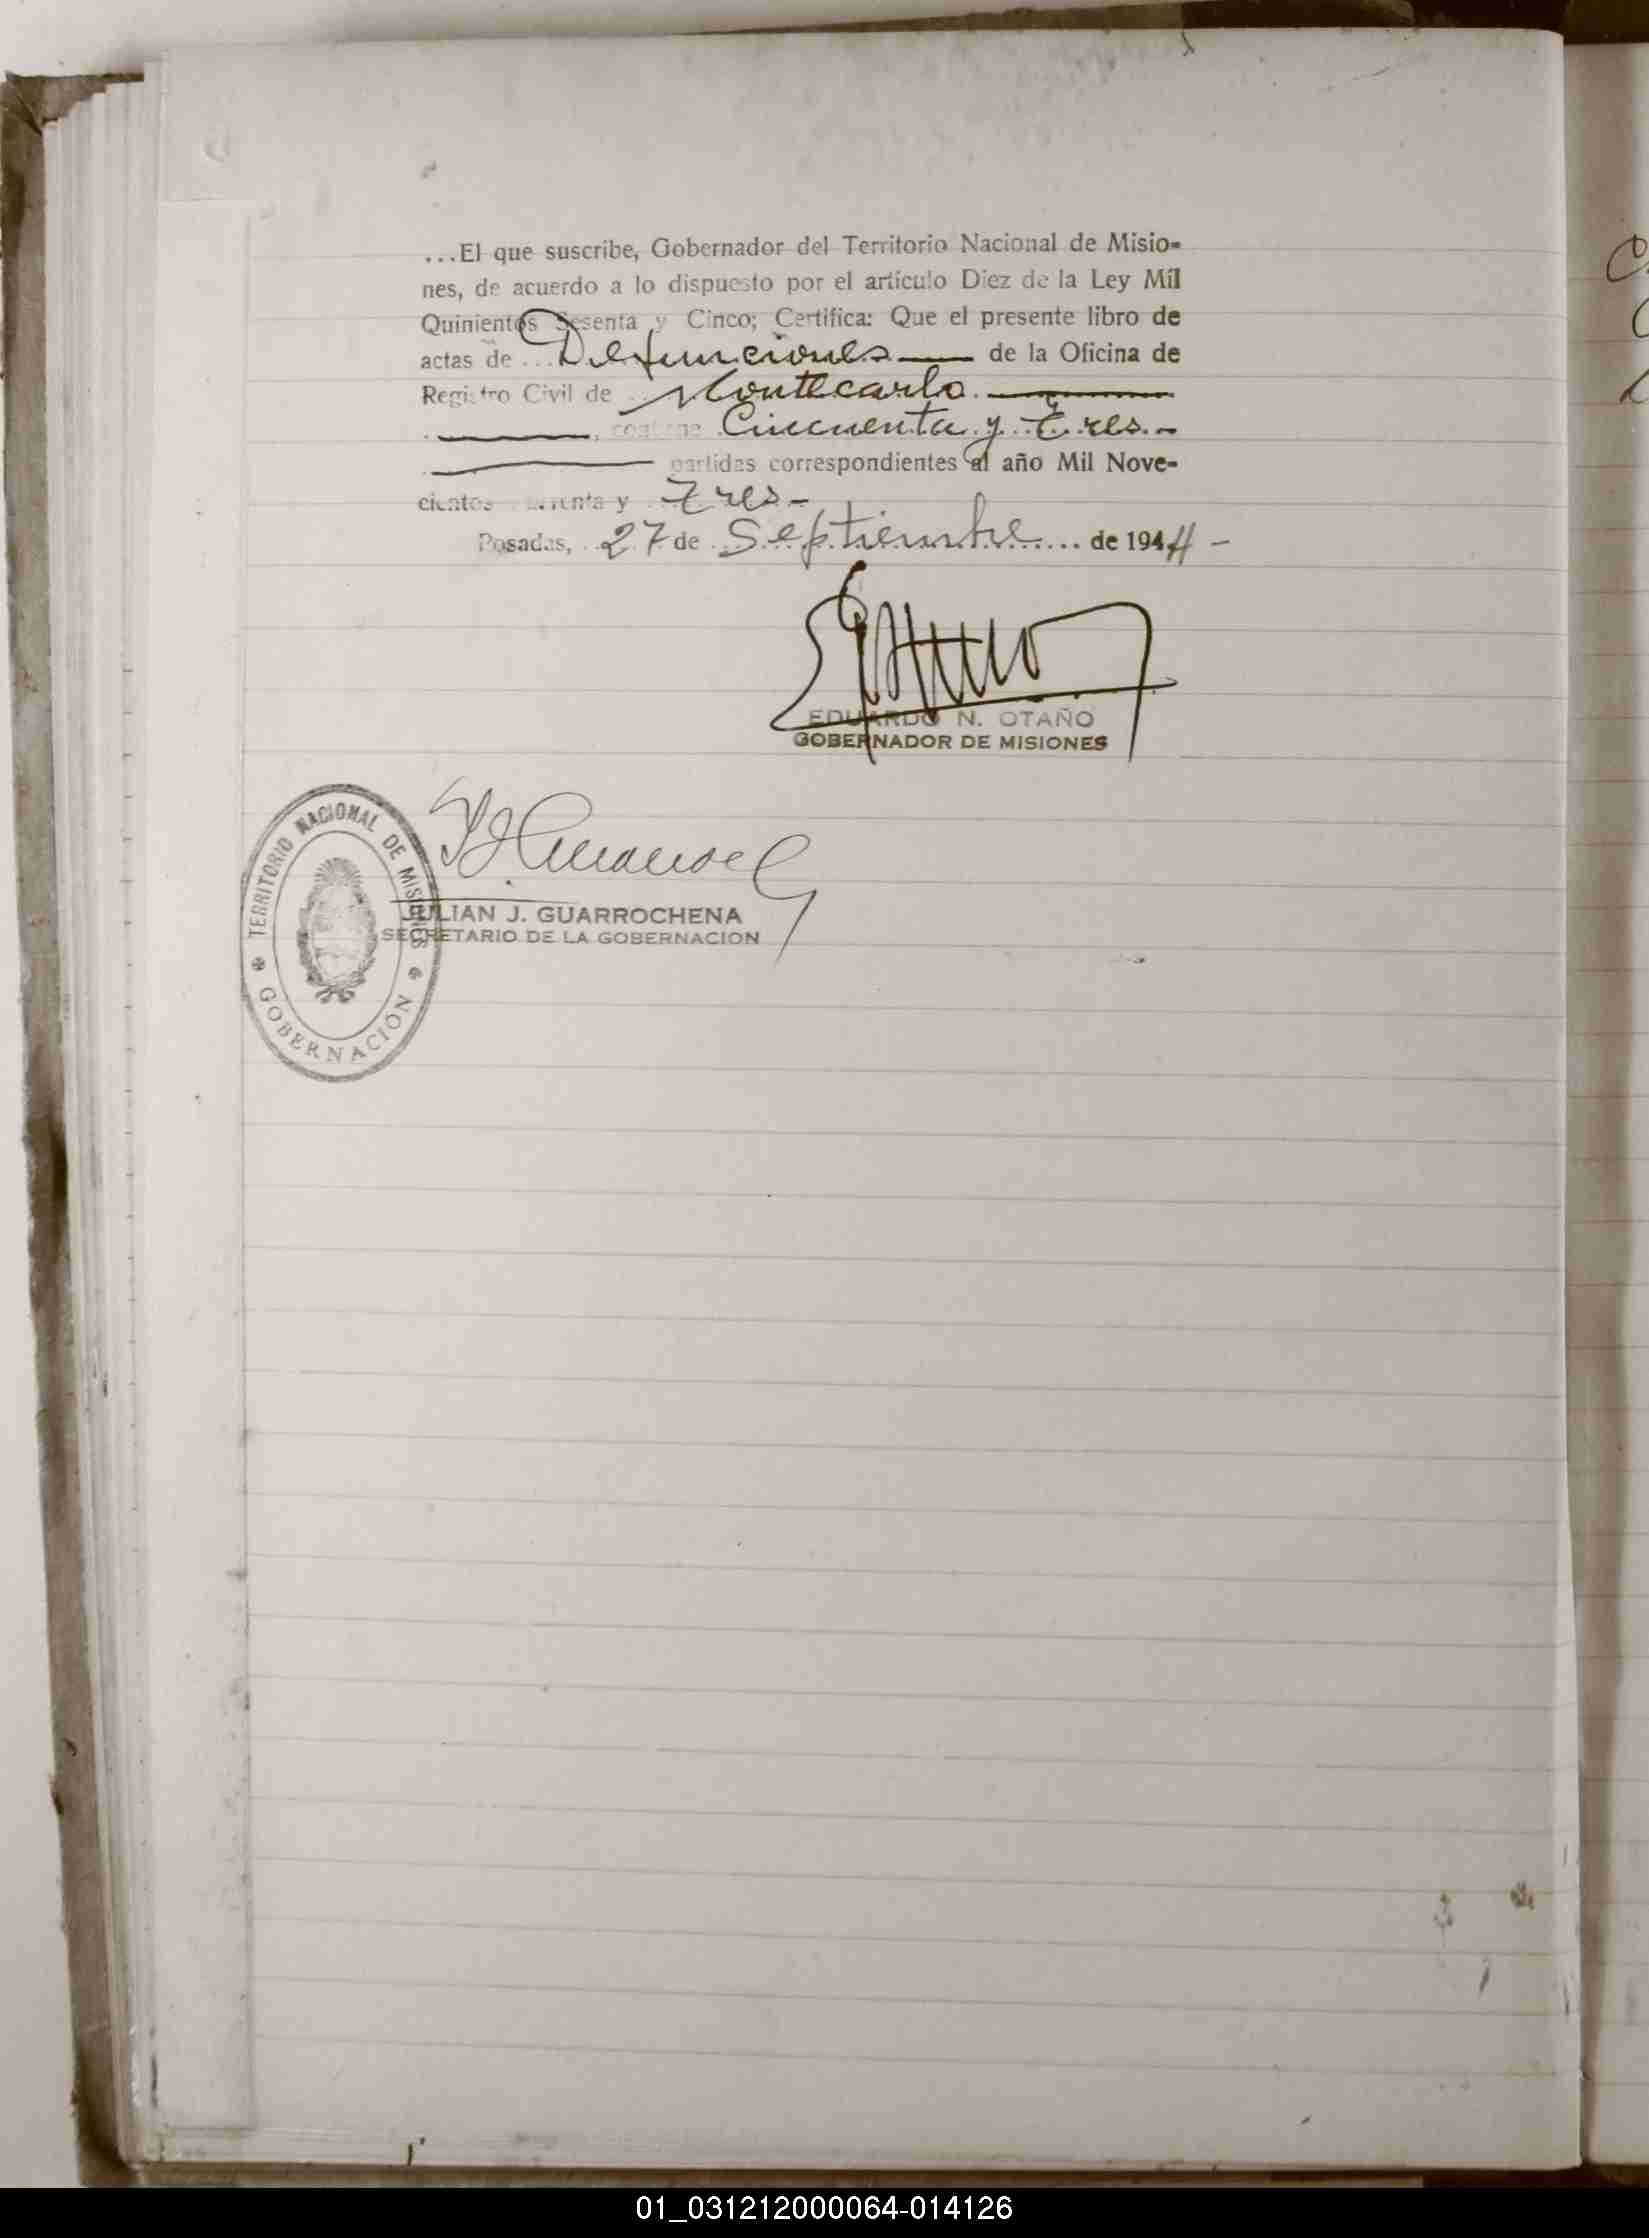 ...El que suscribe, Gobernador del Territorio Nacional de Misio-
nes, de acuerdo a lo dispuesto por el artículo Diez de la Ley Mil
Quinientos Sesenta y Cinco; Certifica: Que el presente libro de
actas de ... Defunciones — de la Oficina de
Registro Civil de Montecarlo. —
—, contiene Cincuenta y Tres. -
— partidas correspondientes al año Mil Nove-
cientos y Tres -
Posadas, 27 de Septiembre ... de 1944 -
EDUARDO N. OTAÑO
GOBERNADOR DE MISIONES
TERRITORIO NACIONAL DE MISIONES
GOBERNACIÓN
JULIAN J. GUARROCHENA
SECRETARIO DE LA GOBERNACION
01_031212000064-014126